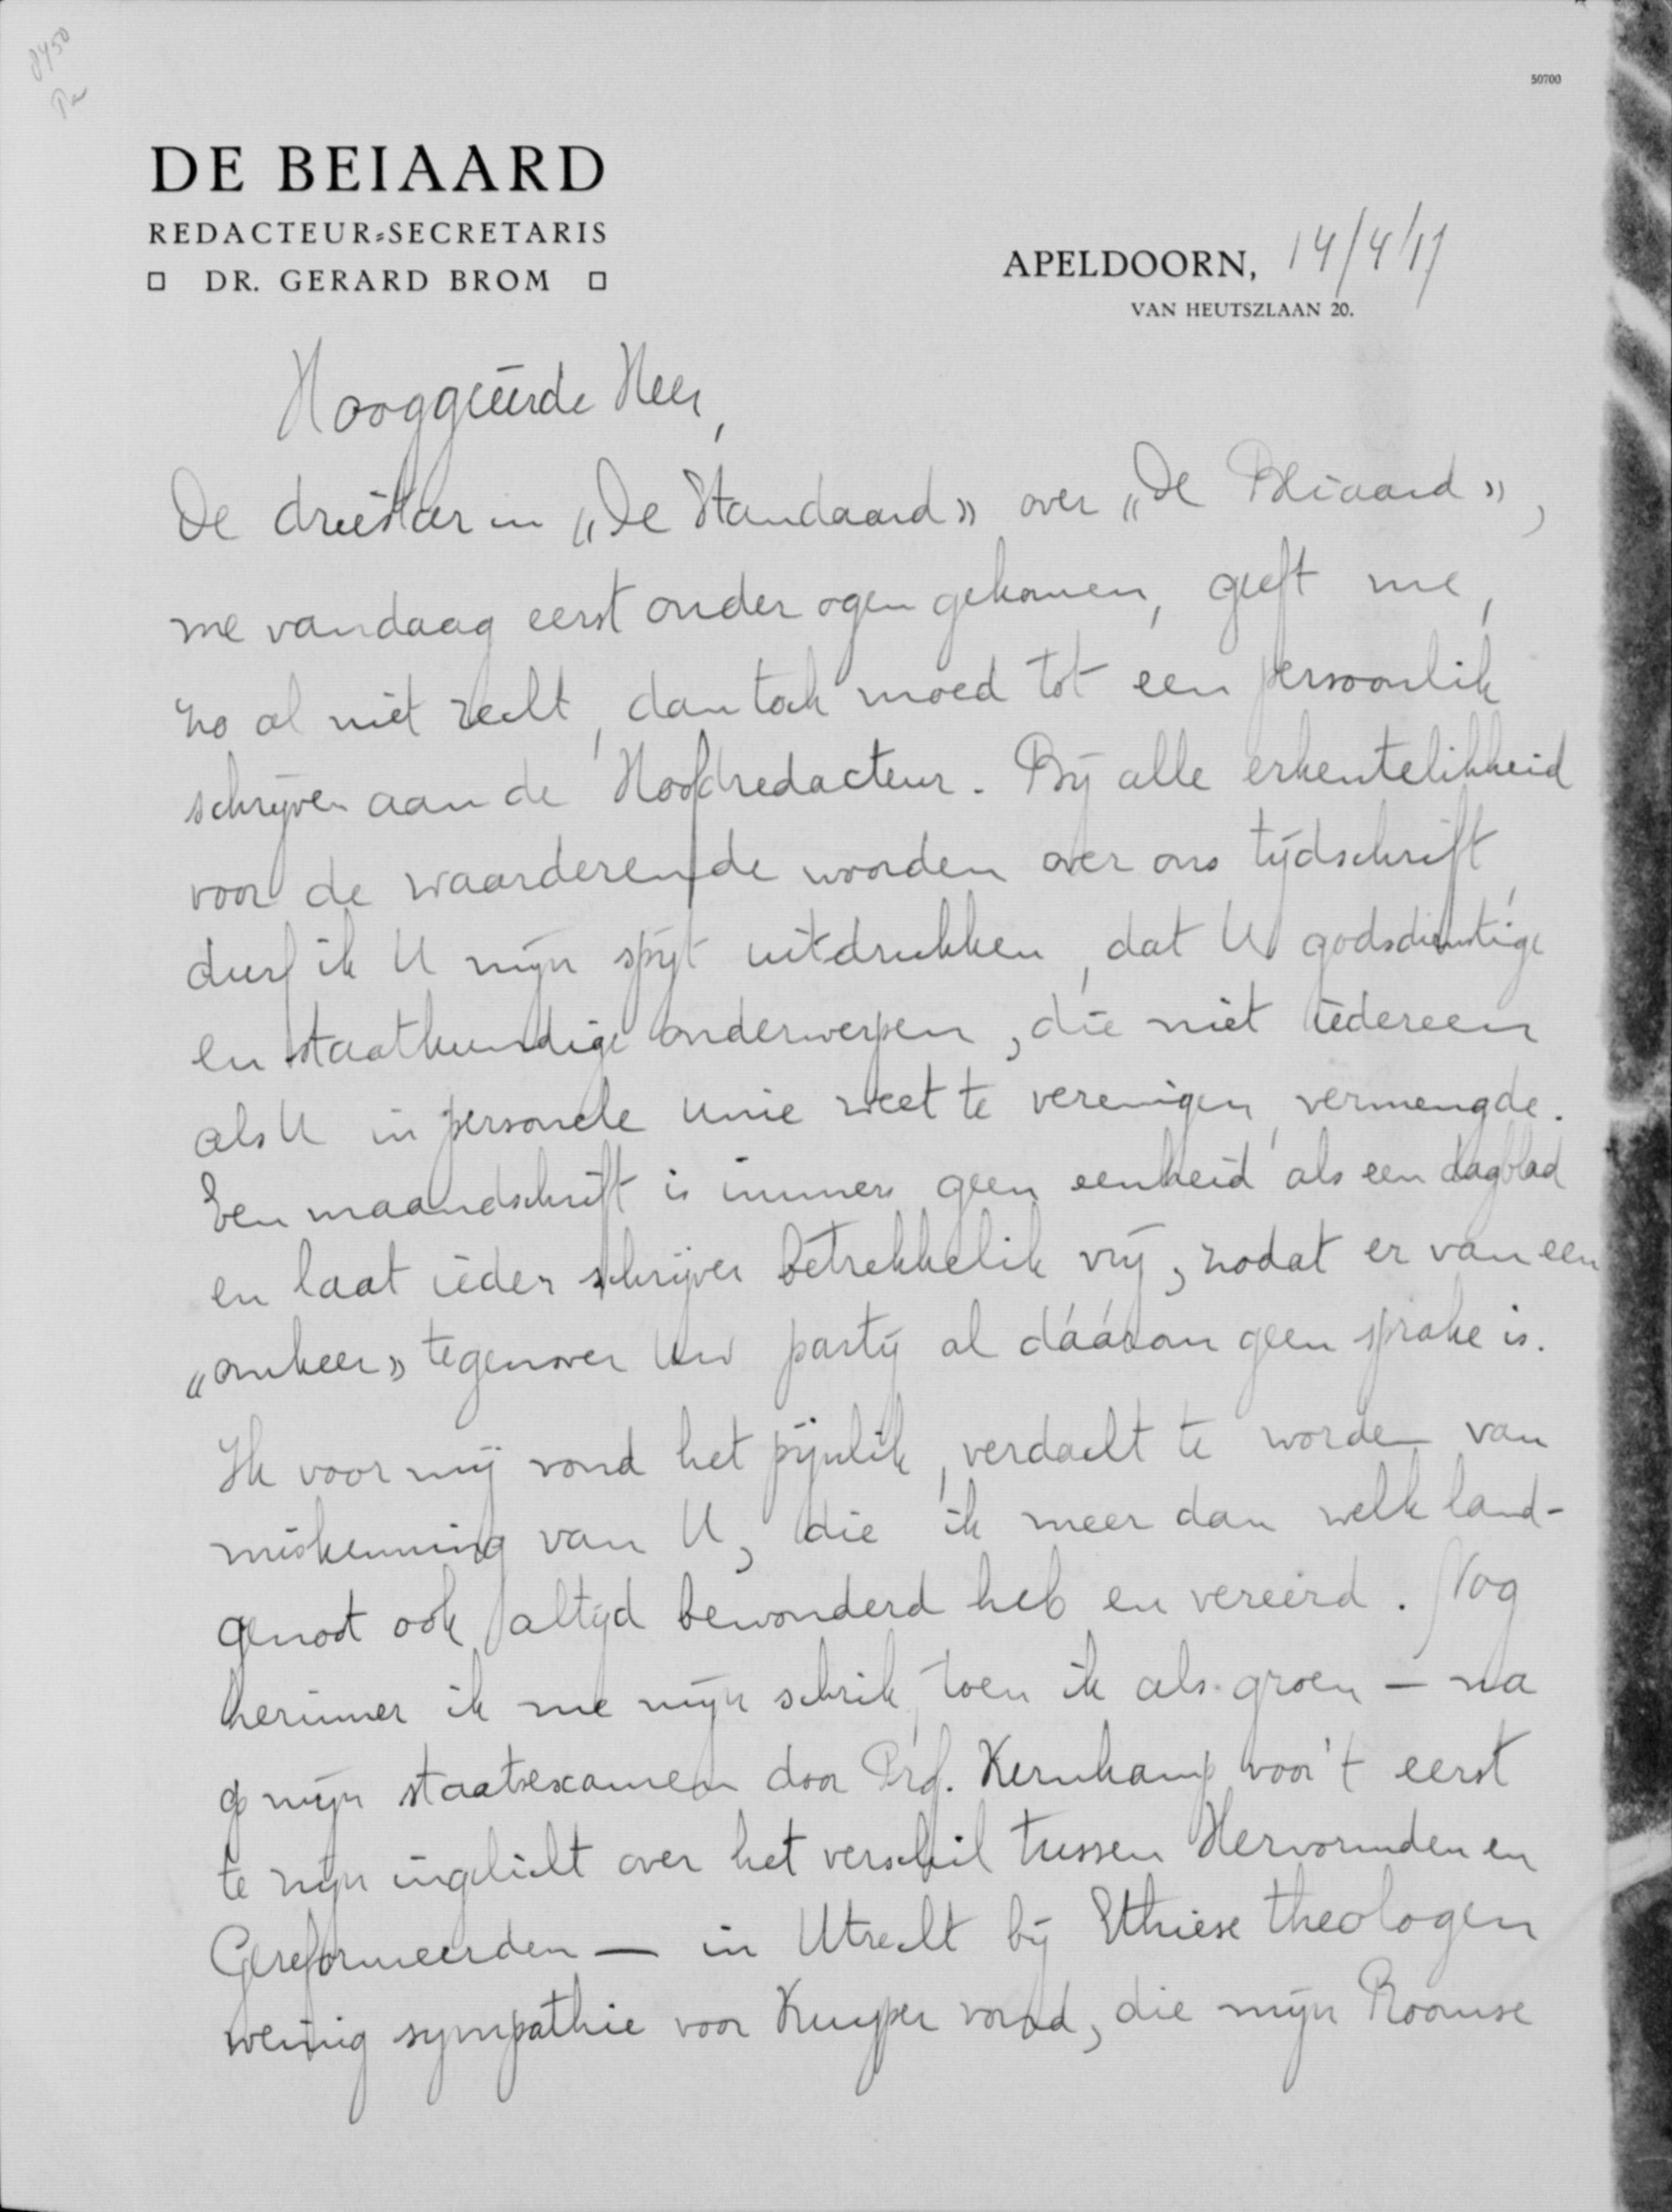 8450
50700
DE BEIAARD
REDACTEUR-SECRETARIS
DR. GERARD BROM
APELDOORN, 14/4/17
VAN HEUTSZLAAN 20.
Hooggeëerde Heer,
De driestar in „De Standaard” over „De Beiaard”,
me vandaag eerst onder ogen gekomen, geeft me,
zo al niet recht, dan toch moed tot een persoonlik
schrijven aan de Hoofdredacteur. Bij alle erkentelikheid
voor de waarderende woorden over ons tijdschrift,
durf ik U mijn spijt uitdrukken, dat U godsdienstige
en staatkundige onderwerpen, die niet iedereen
als U in personele unie weet te verenigen, vermengde.
Een maandschrift is immers geen eenheid als een dagblad
en laat ieder schrijver betrekkelik vrij, zodat er van een
„omkeer” tegenover Uw partij al dáárom geen sprake is.
Ik voor mij vond het pijnlik, verdacht te worden van
miskenning van U, die ik meer dan welk land-
genoot ook altijd bewonderd heb en vereerd. Nog
herinner ik me mijn schrik, toen ik als groen — na
op mijn staatsexamen door Prof. Kernkamp voor 't eerst
te zijn ingelicht over het verschil tussen Hervormden en
Gereformeerden — in Utrecht bij Ethiese theologen
weinig sympathie voor Kuyper vond, die mijn Roomse